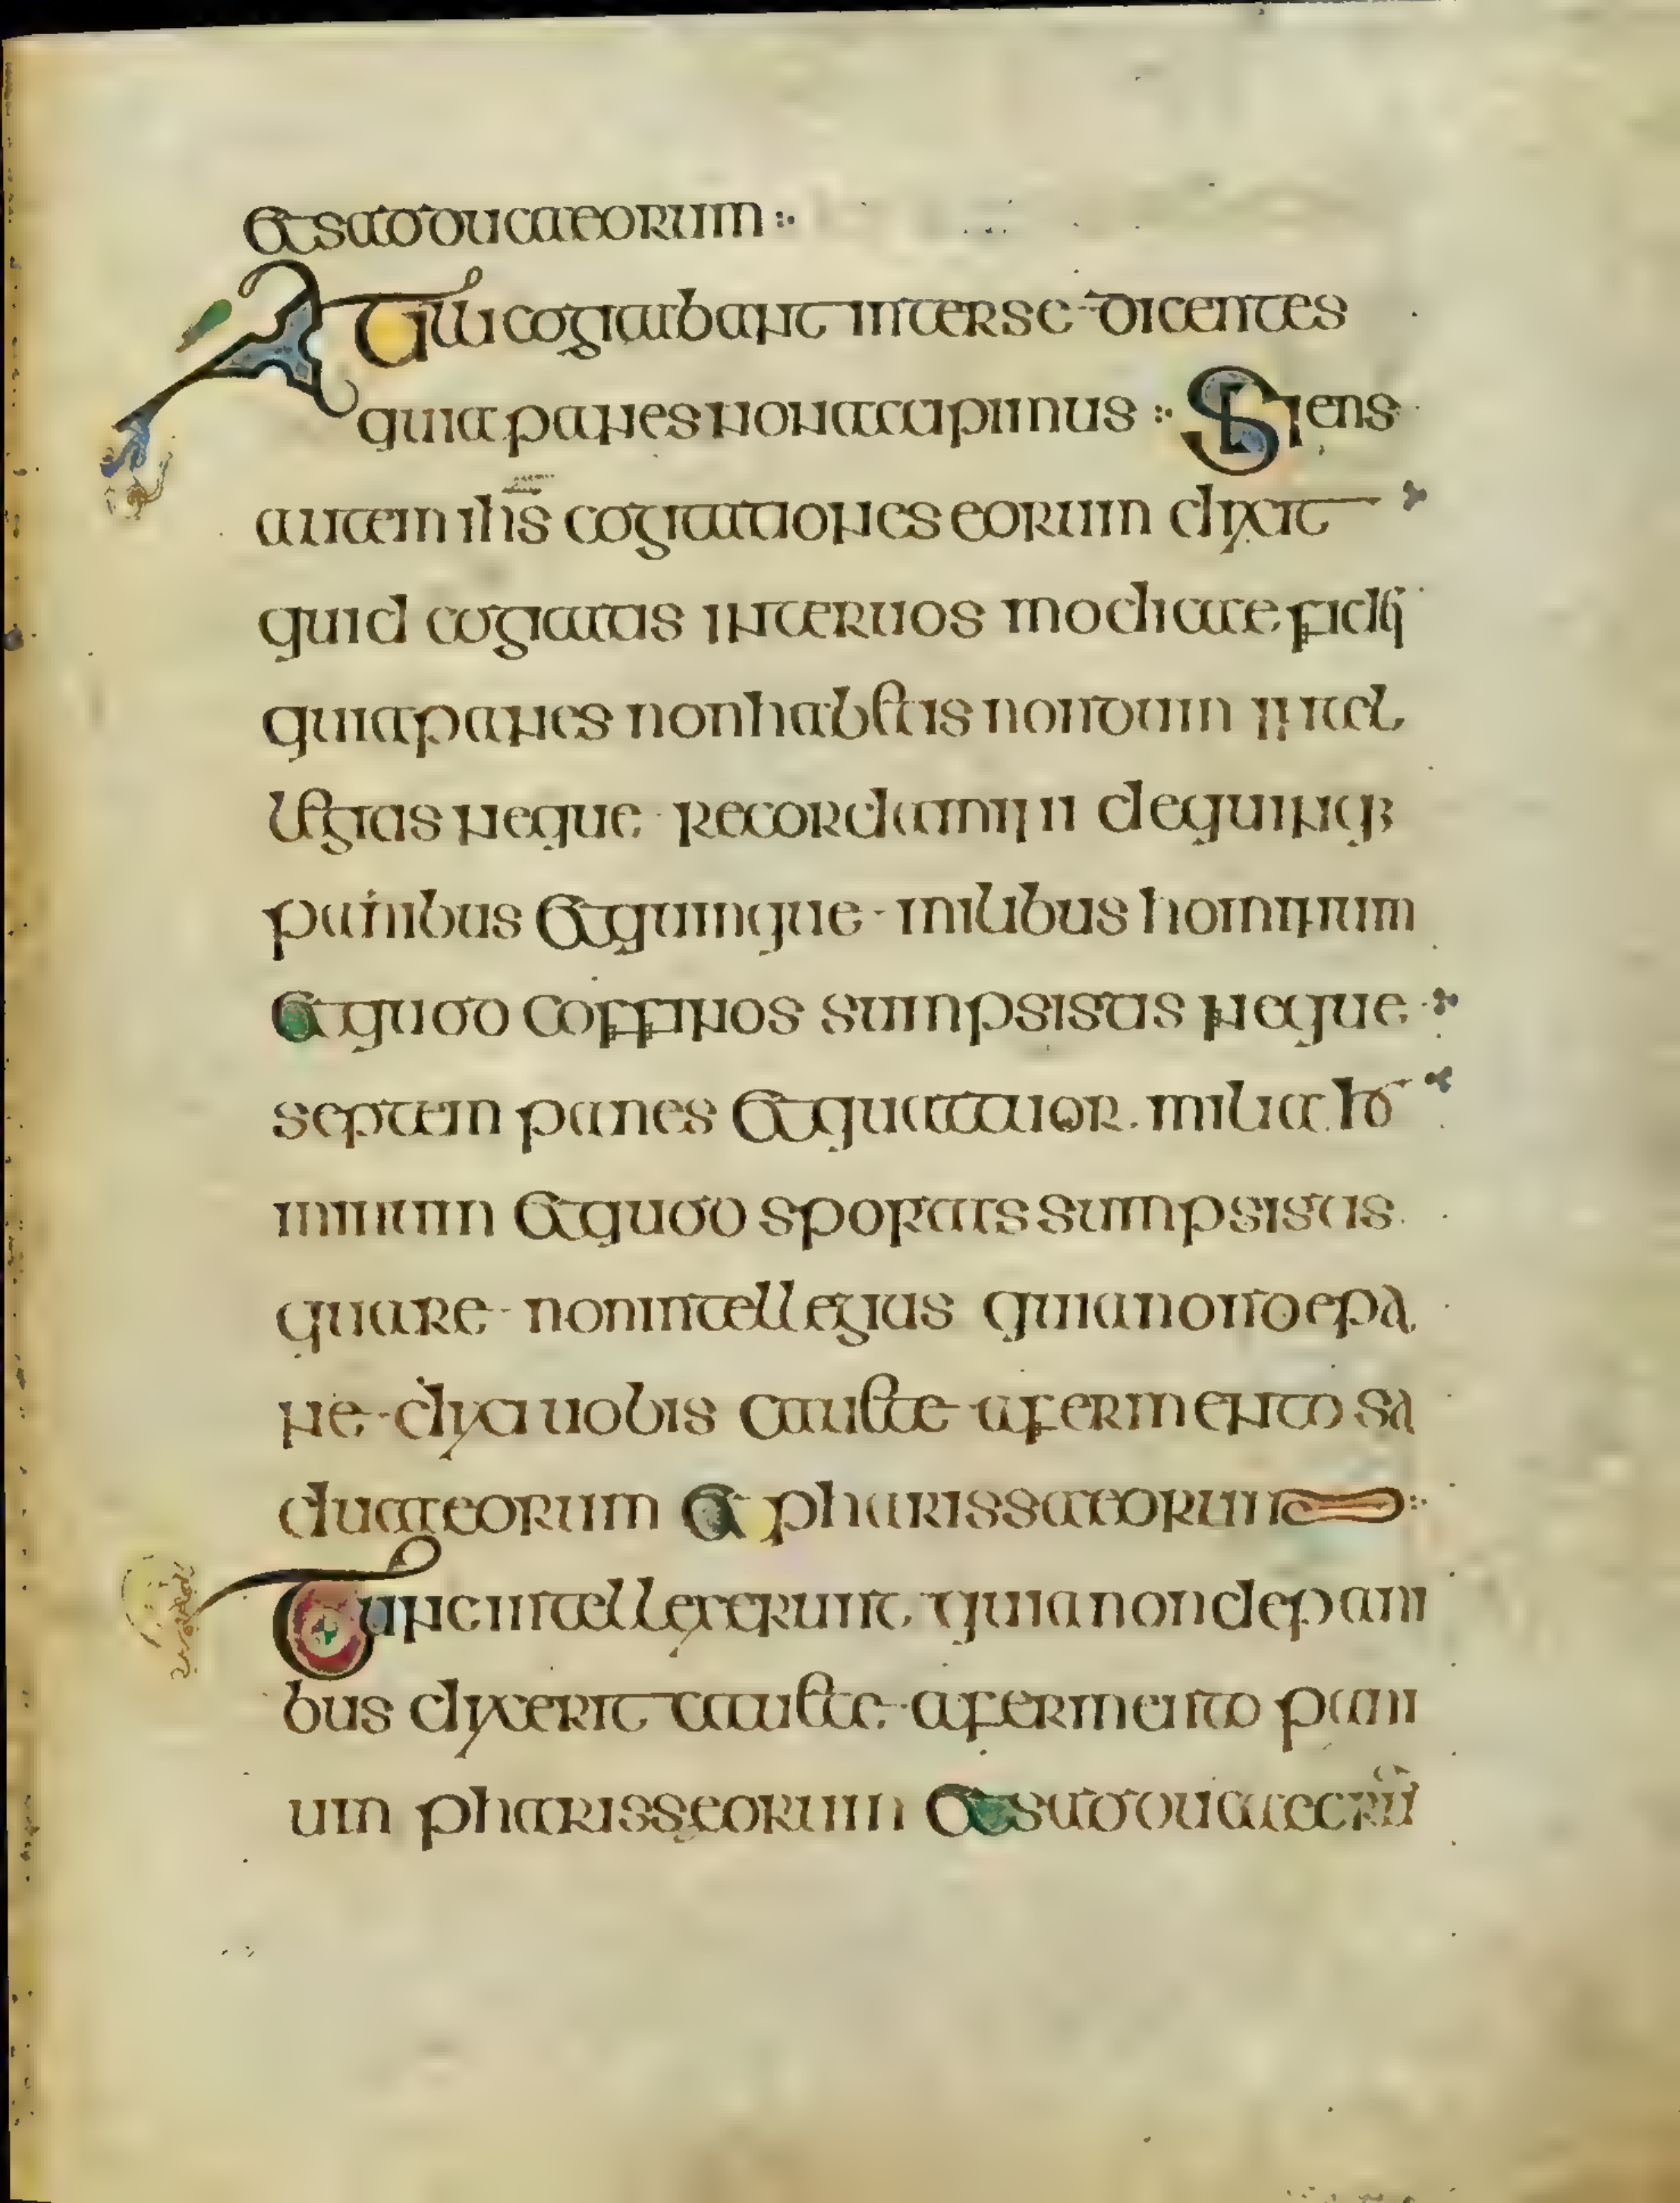 et sadducaeorum :·
At illi cogitabant inter se · dicentes
quia panes non accipimus :· Sciens
autem ihs cogitationes eorum dixit
quid cogitatis inter uos modicae fidei
quia panes non habetis nondum intel
letgitis neque recordamini de quinq;
panibus et quinque · milibus hominum
et quod coffinos sumpsistis neque
septem panes et quattuor · milia ho
minum et quod sportas sumpsistis
quare · non intellegitis quia non de pa
ne · dixi uobis cauete · a fermento sa
ducaeorum et pharissaeorum :·
Tunc intellexerunt quia non de pani
bus dixerit cauete · a fermento pani
um pharisseorum et sadducaeorū